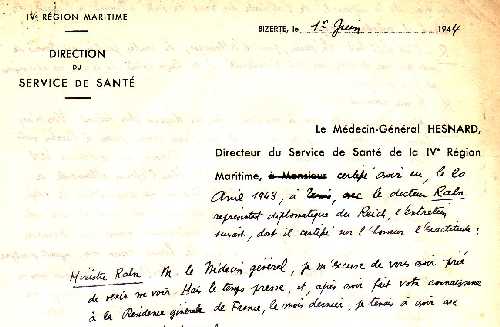 IVᵉ RÉGION MARITIME
DIRECTION
DU
SERVICE DE SANTÉ
BIZERTE, le 1er Juin 1944
Le Médecin-Général HESNARD,
Directeur du Service de Santé de la IVᵉ Région
Maritime, à Monsieur certifie avoir eu, le 20
Avril 1943, à Tunis, avec le docteur Rahn
représentant diplomatique du Reich, l'Entretien
suivant, dont il certifie sur l'honneur l'Exactitude :
Ministre Rahn. M. le Médecin général, je m'excuse de vous avoir prié
de venir me voir. Mais le temps presse, et, après avoir fait votre connaissance
à la Résidence générale de France, le mois dernier, je tenais à avoir avec